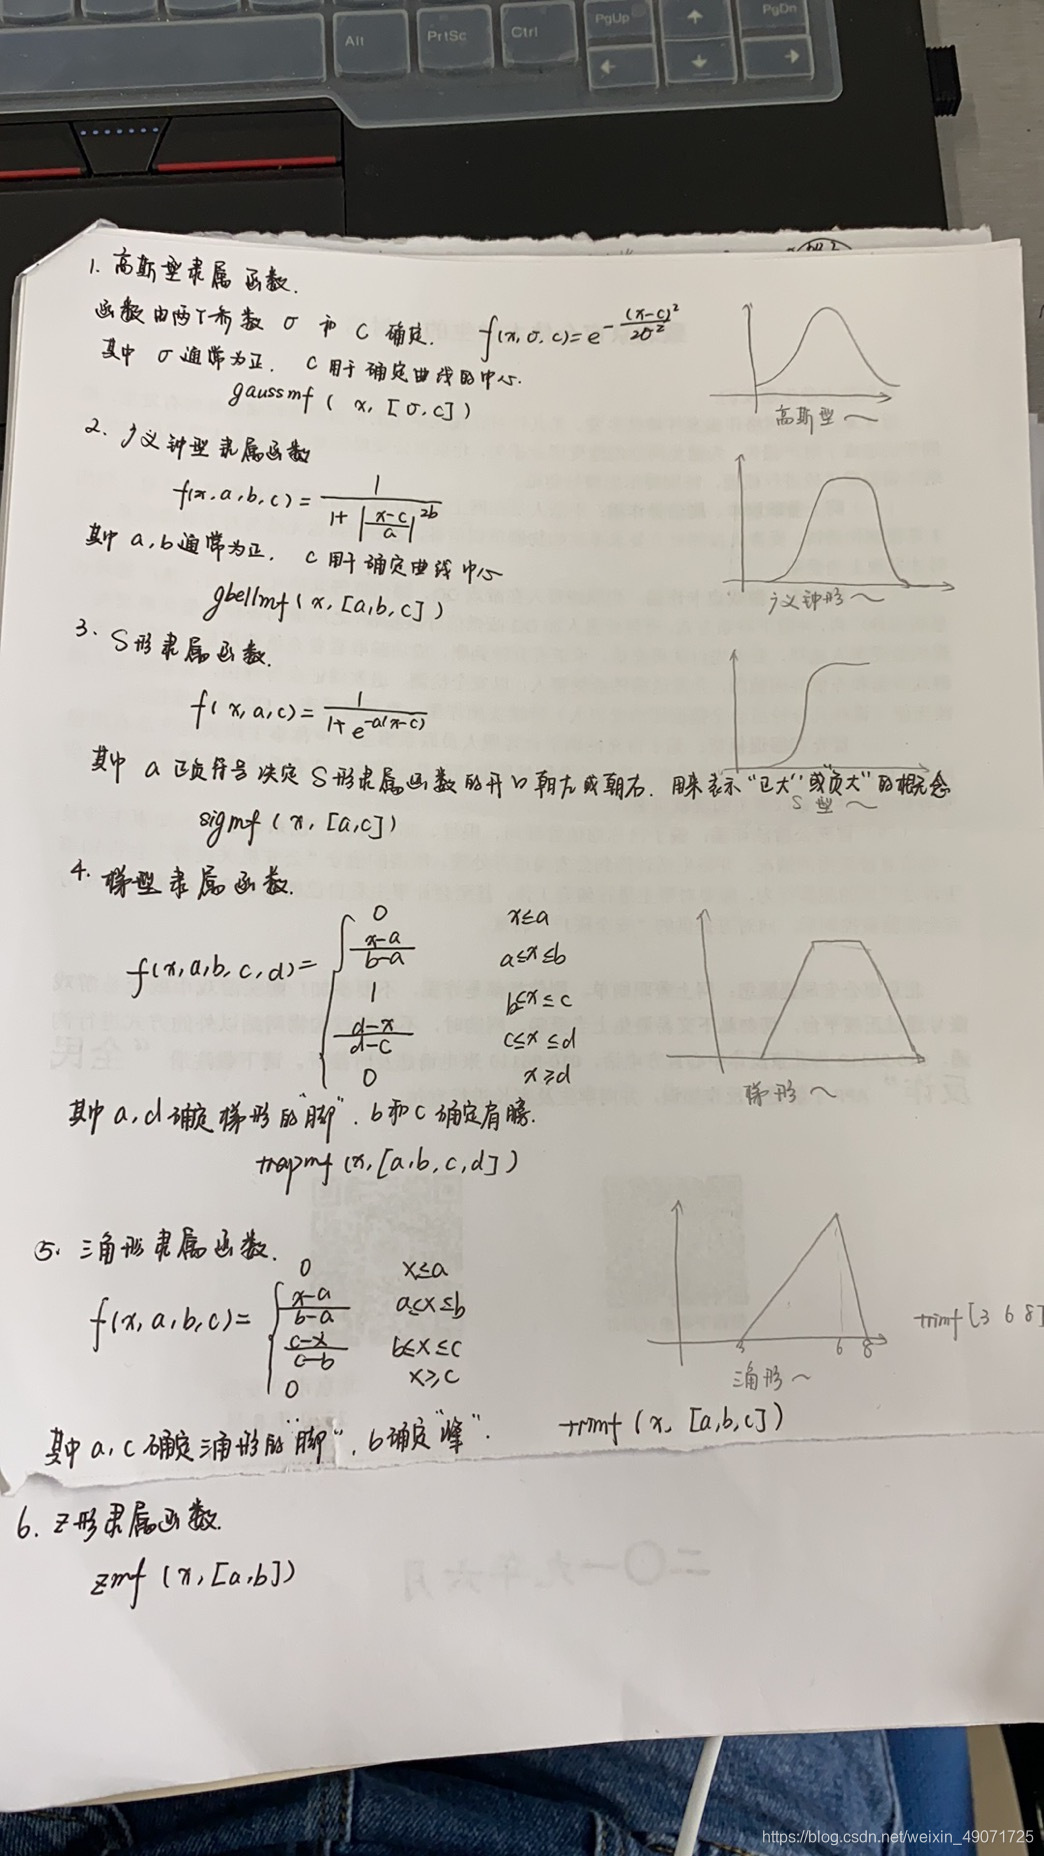 Alt
PrtSc
Ctrl
PgUp
PgDn
1. 高斯型隶属函数.
函数由两个参数 σ 和 c 确定. f(x, σ, c) = e^{-\frac{(x-c)^2}{2σ^2}}
其中 σ 通常为正. c 用于确定曲线的中心.
gaussmf ( x, [σ, c])
高斯型~
2. 广义钟型隶属函数
f(x, a, b, c) = \frac{1}{1+|\frac{x-c}{a}|^{2b}}
其中 a, b 通常为正. c 用于确定曲线中心
gbellmf ( x, [a, b, c])
广义钟形~
3. S形隶属函数.
f( x, a, c) = \frac{1}{1+e^{-a(x-c)}}
其中 a 正负符号决定 S形隶属函数的开口朝左或朝右. 用来表示"正大"或"负大"的概念
S型~
sigmf ( x, [a, c])
4. 梯型隶属函数.
0 x≤a
\frac{x-a}{b-a} a≤x≤b
f(x, a, b, c, d) = 1 b≤x≤c
\frac{d-x}{d-c} c≤x≤d
0 x≥d
梯形~
其中 a, d 确定梯形的"脚". b和c确定肩膀.
trapmf (x, [a, b, c, d])
⑤. 三角形隶属函数.
0 x≤a
\frac{x-a}{b-a} a≤x≤b
f(x, a, b, c) = \frac{c-x}{c-b} b≤x≤c
0 x≥c
trimf [3 6 8]
3 6 8
三角形~
其中 a, c 确定三角形的"脚". b确定"峰". trimf ( x, [a, b, c])
6. Z形隶属函数.
zmf ( x, [a, b])
二〇一九年六月
https://blog.csdn.net/weixin_49071725